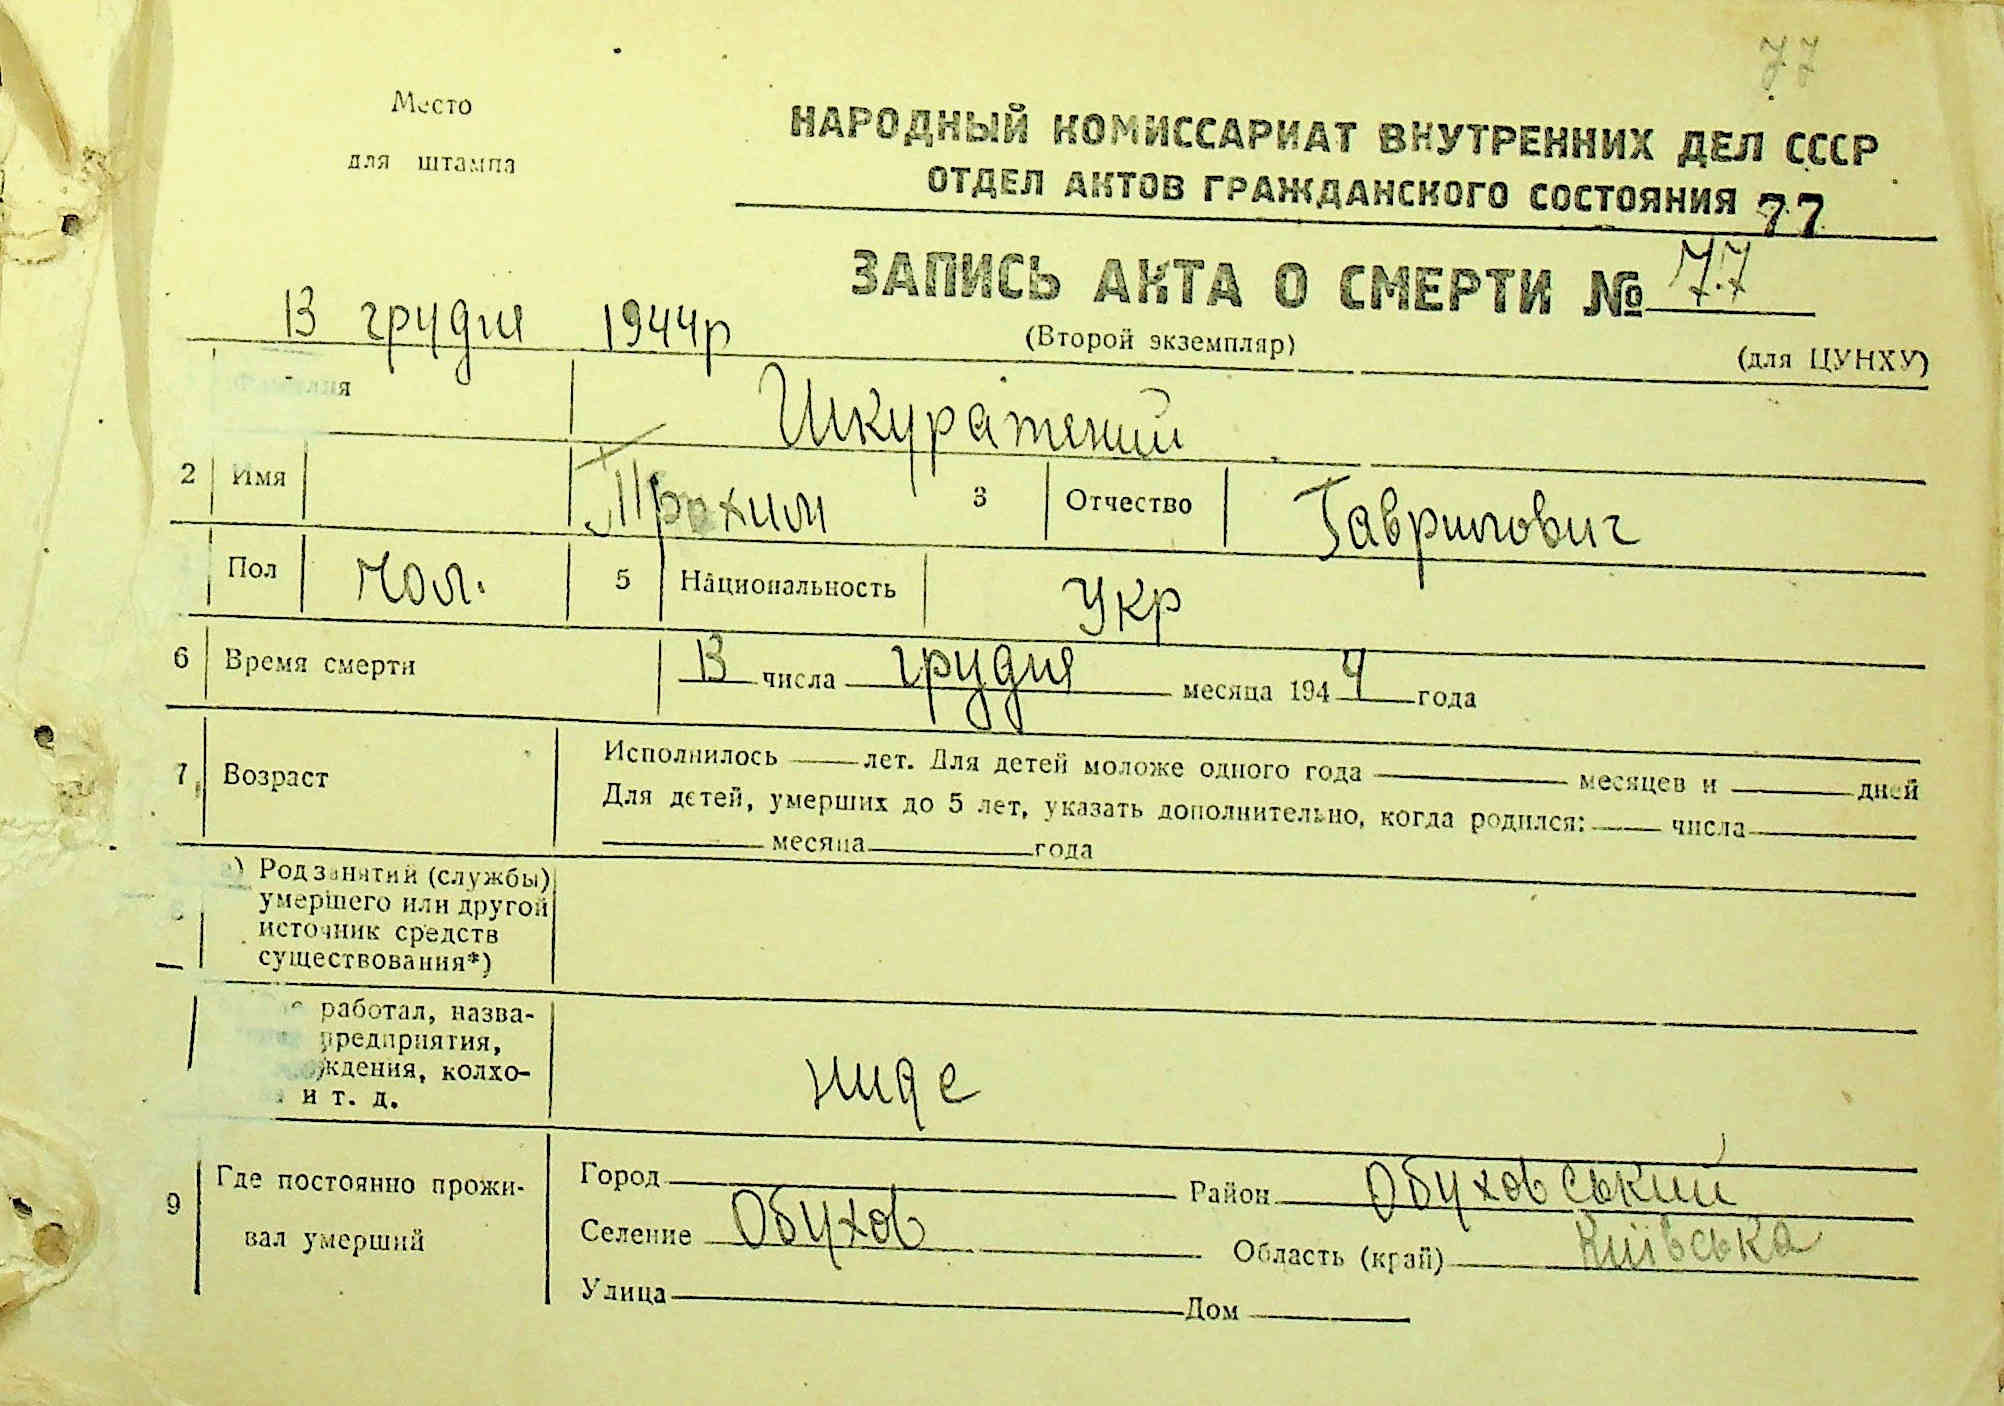 77
Место
для штампа
НАРОДНЫЙ КОМИССАРИАТ ВНУТРЕННИХ ДЕЛ СССР
ОТДЕЛ АКТОВ ГРАЖДАНСКОГО СОСТОЯНИЯ 77
ЗАПИСЬ АКТА О СМЕРТИ № 77
13 грудня 1944р
(Второй экземпляр)
(для ЦУНХУ)
Шкуратений
2 Имя Прохим 3 Отчество Гаврилович
Пол Чол. 5 Национальность Укр
6 Время смерти 13 числа грудня месяца 1944 года
7 Возраст Исполнилось лет. Для детей моложе одного года месяцев и дней
Для детей, умерших до 5 лет, указать дополнительно, когда родился: числа
месяца года
Род занятий (службы)
умершего или другой
источник средств
существования*)
работал, назва-
предприятия,
ждения, колхо-
и т. д.
ниде
9 Где постоянно прожи-
вал умерший
Город Район Обуховський
Селение Обухов Область (край) Київська
Улица Дом